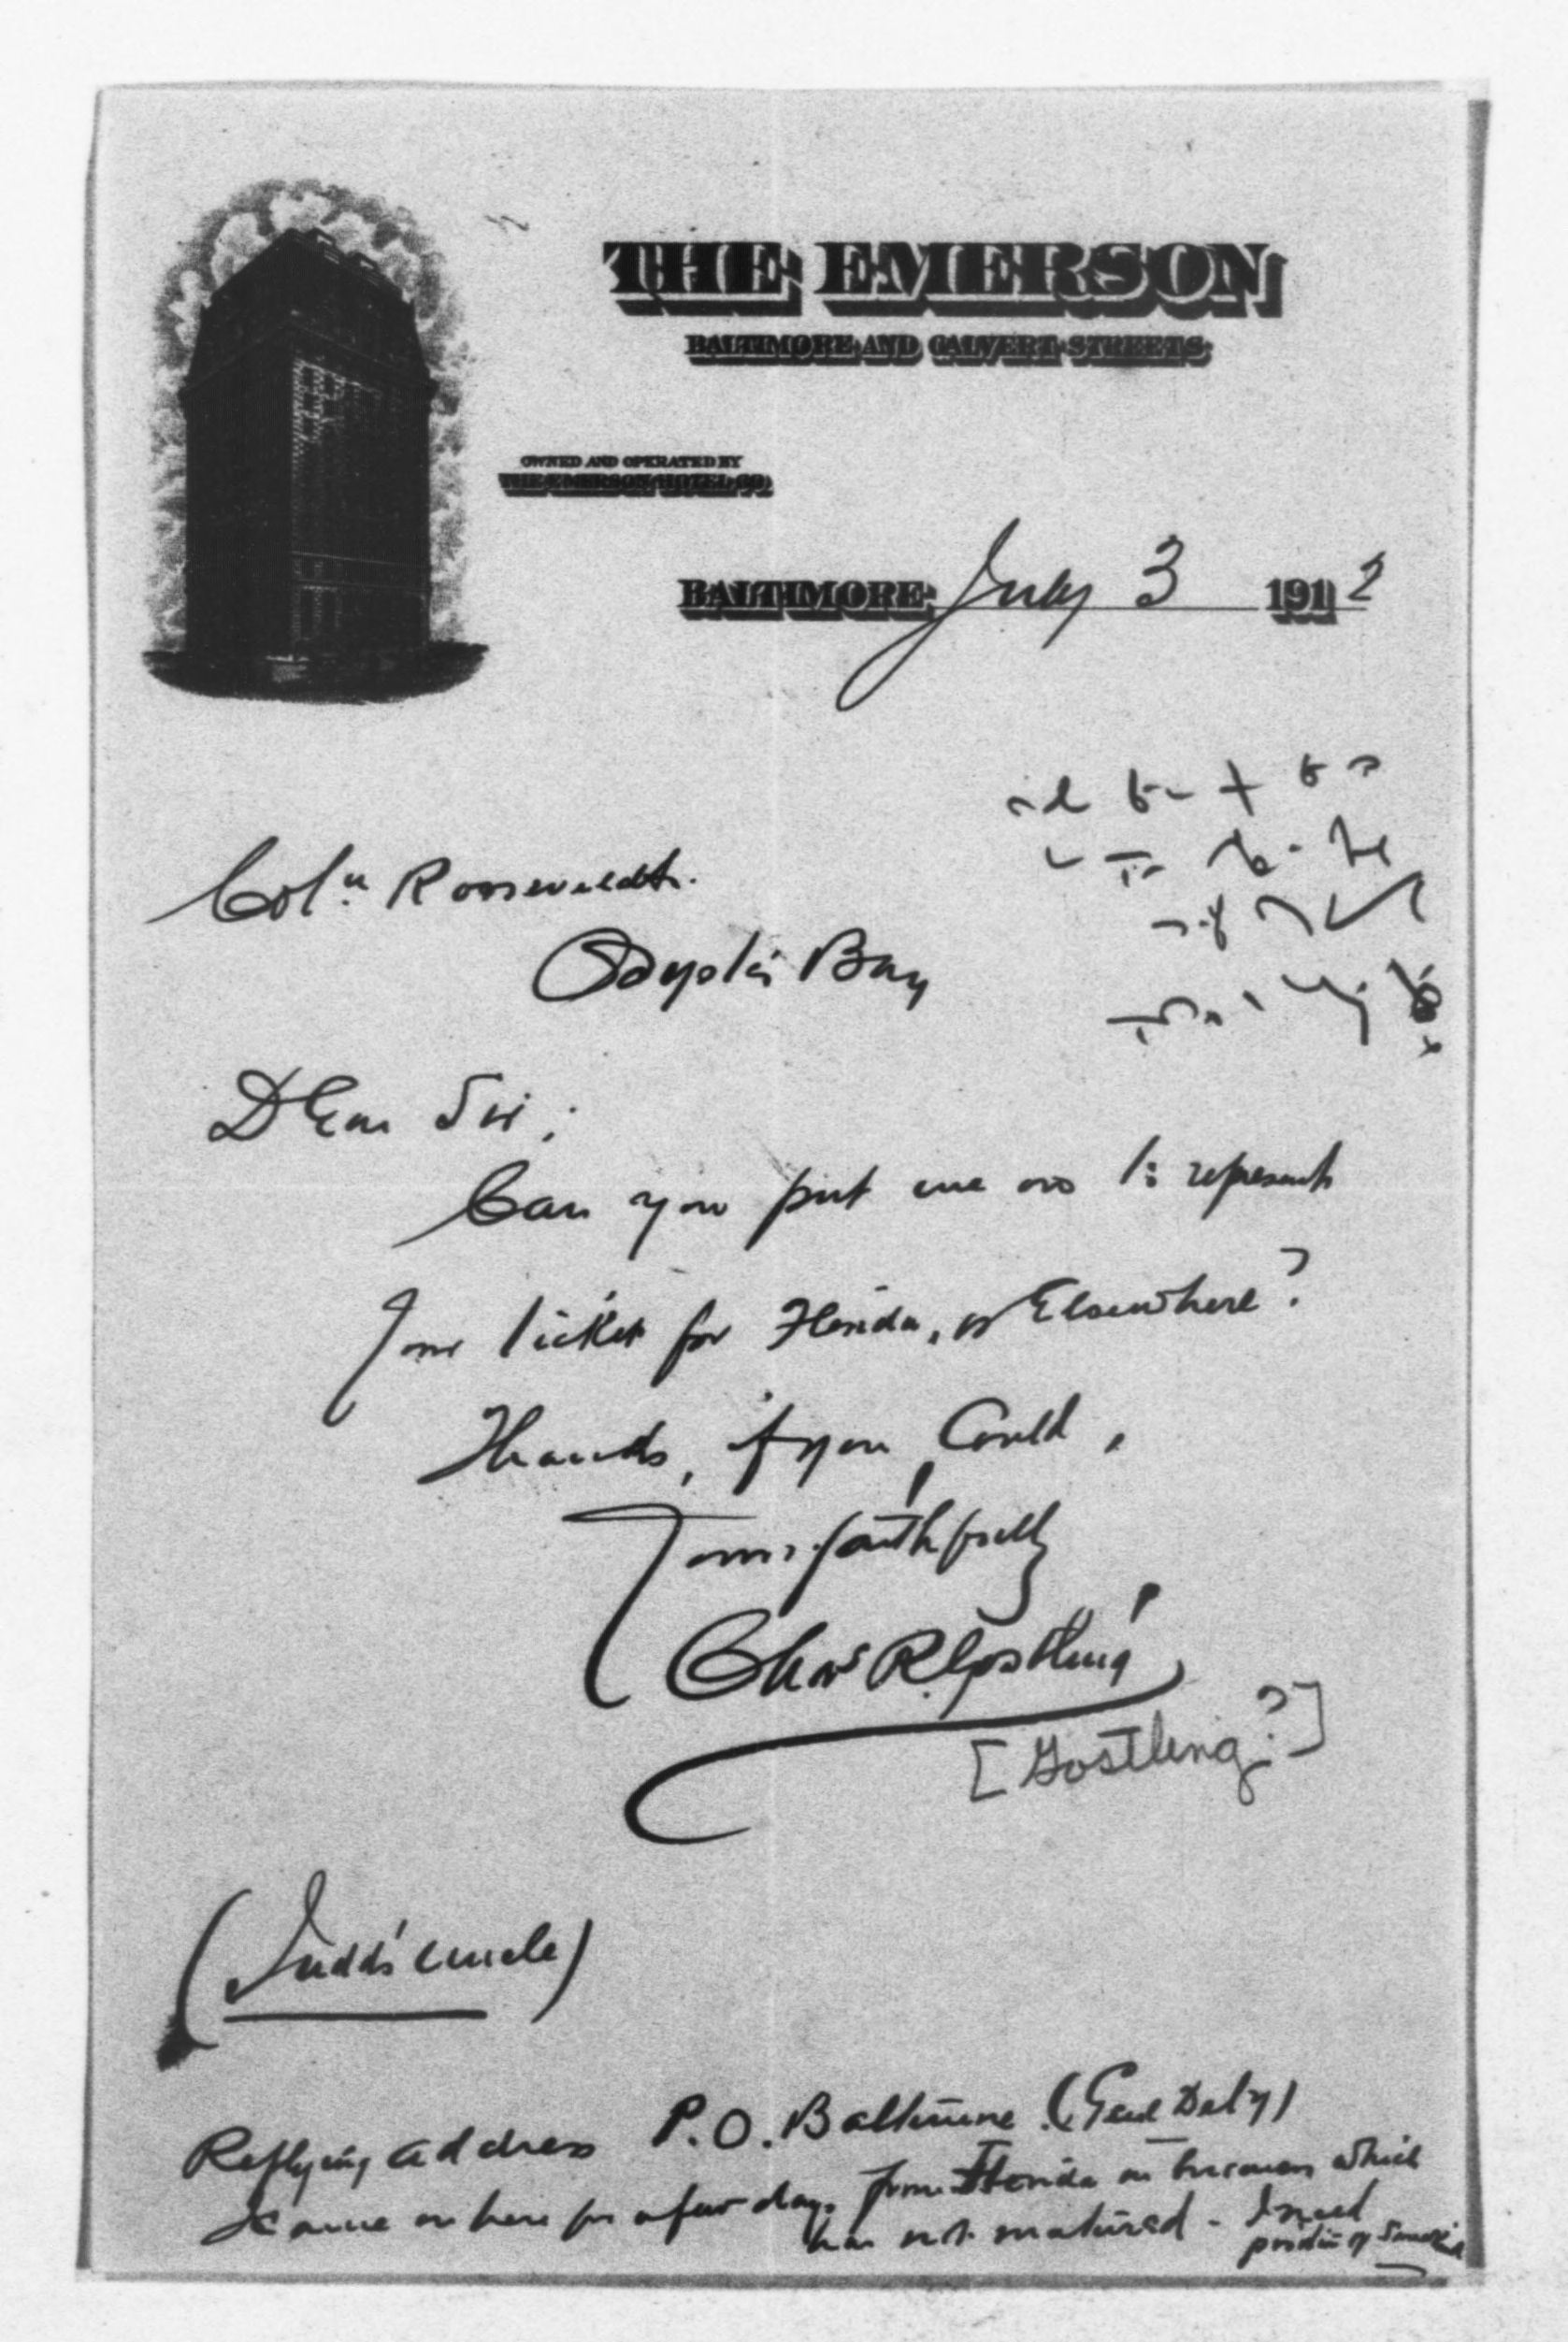 THE EMERSON
BALTIMORE AND CALVERT STREETS
OWNED AND OPERATED BY
THE EMERSON HOTEL CO.
BALTIMORE, July 3 1912
Col.n Rooseveldt.
Oyster Bay
Dear Sir;
Can you put me on to represent
your ticket for Florida, or Elsewhere?
Thanks, if you Could,
Yours faithfully
Chas R. Gostling
[Gostling?]
(Judd's uncle)
Replying address P.O. Baltimore (Genl Dely)
I came on here for a few days from Florida on business which
has not matured - I need